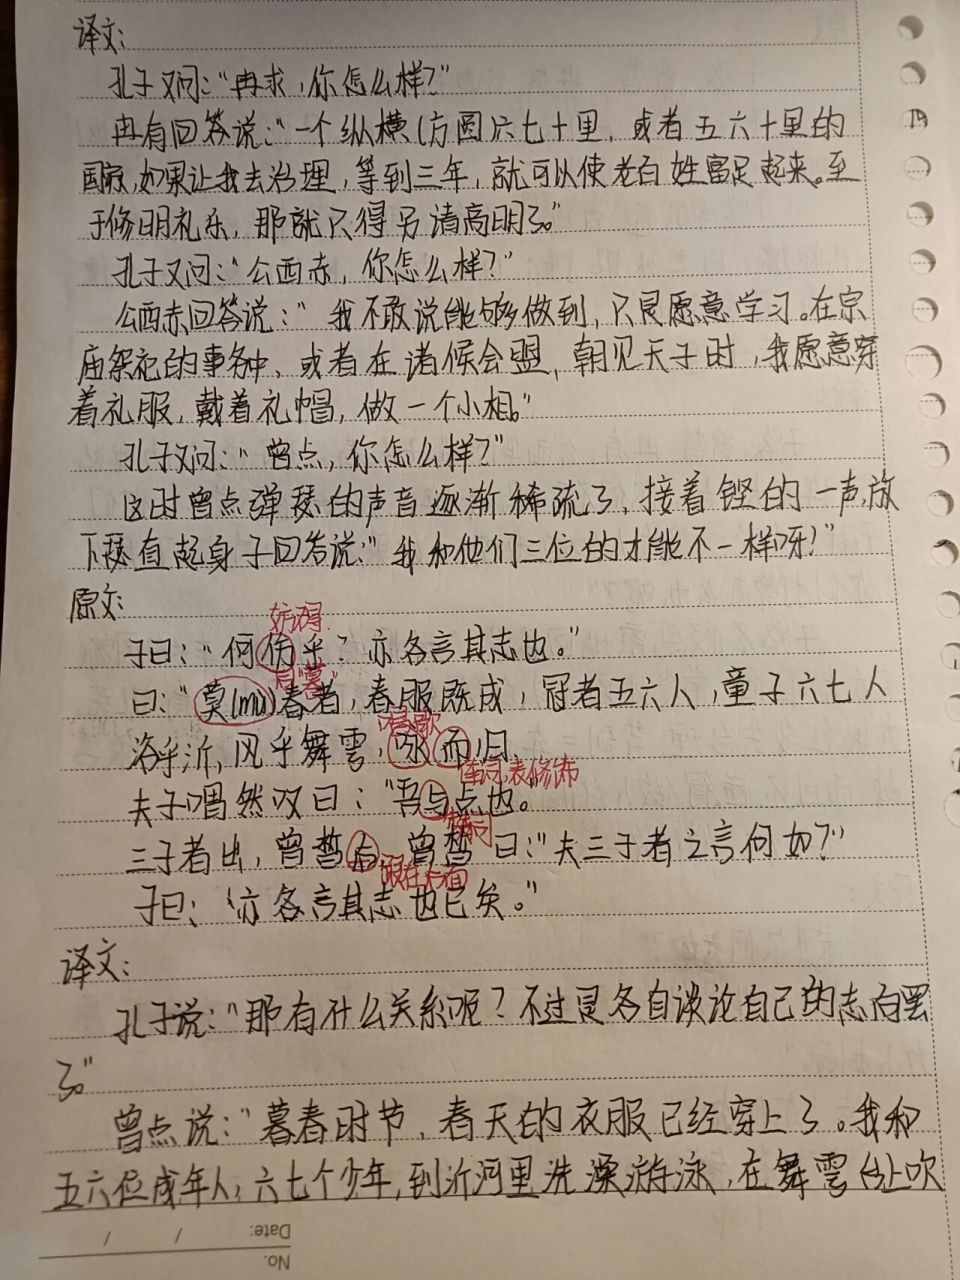 译文:
孔子又问:“冉求,你怎么样?”
冉有回答说:“一个纵横(方圆)六七十里,或者五六十里的
国家,如果让我去治理,等到三年,就可以使老百姓富足起来。至
于修明礼乐,那就只得另请高明了。”
孔子又问:“公西赤,你怎么样?”
公西赤回答说:“我不敢说能够做到,只是愿意学习。在宗
庙祭祀的事务中,或者在诸侯会盟,朝见天子时,我愿意穿
着礼服,戴着礼帽,做一个小相。”
孔子又问:“曾点,你怎么样?”
这时曾点弹瑟的声音逐渐稀疏了,接着铿的一声,放
下瑟直起身子回答说:“我和他们三位的才能不一样呀!”
原文:
妨碍
子曰:“何伤乎?亦各言其志也。”
同“暮”
曰:“莫(mù)春者,春服既成,冠者五六人,童子六七人
唱歌
浴乎沂,风乎舞雩,咏而归。
连词,表修饰
夫子喟然叹曰:“吾与点也。”
三子者出,曾皙后,曾皙曰:“夫三子者之言何如?”
跟在后面
子曰:“亦各言其志也已矣。”
译文:
孔子说:“那有什么关系呢?不过是各自谈论自己的志向罢
了。”
曾点说:“暮春时节,春天的衣服已经穿上了。我和
五六位成年人,六七个少年,到沂河里洗澡游泳,在舞雩台上吹
Date: / /
No.